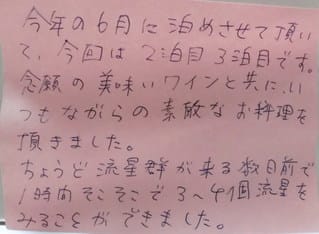 今年の6月に泊めさせて頂い
て、今回は2泊目3泊目です。
念願の美味いワインと共に、い
つもながらの素敵なお料理を
頂きました。
ちょうど流星群が来る数日前で
1時間そこそこで3〜4個流星を
みることができました。